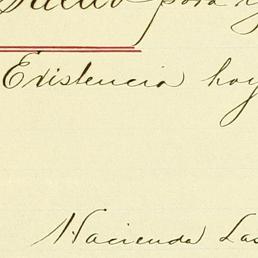 Saldo para
Existencia hoy
Hacienda Las